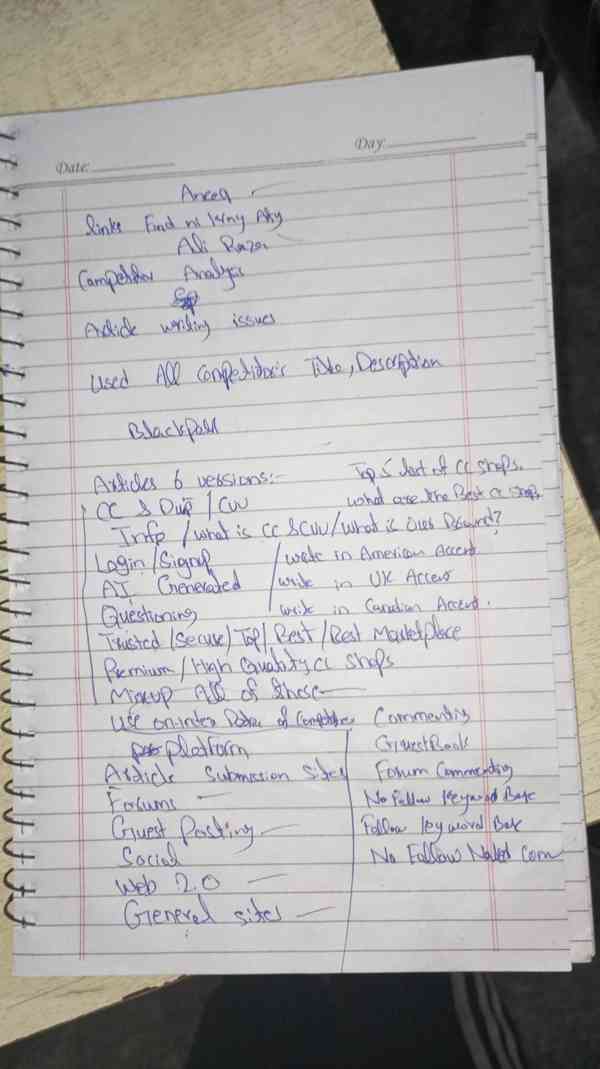 Date:
Day:
Aneeq
Links Find
Ali Raza
Competitor Analysis
Article writing issues
Used All Competitor's Title, Description
Articles 6 versions:-
Top 5 list of CC shops.
CC & Dump / CVV
what are the Best cc shops
Info / what is CC & CVV / what is
Login / Signup / write in American Accent
AI Generated / write in UK Accent
Questioning / write in Canadian Accent.
Trusted / Secure / Top / Best / Best Marketplace
Premium / High Quality cc shops
Mixup All of these
Use of Competitor
platform
Article Submission sites
Forums
Guest Posting
Social
Web 2.0
General sites
Commenting
GuestBook
Forum Commenting
No Follow keyword Base
Follow keyword Base
No Follow Naked Com